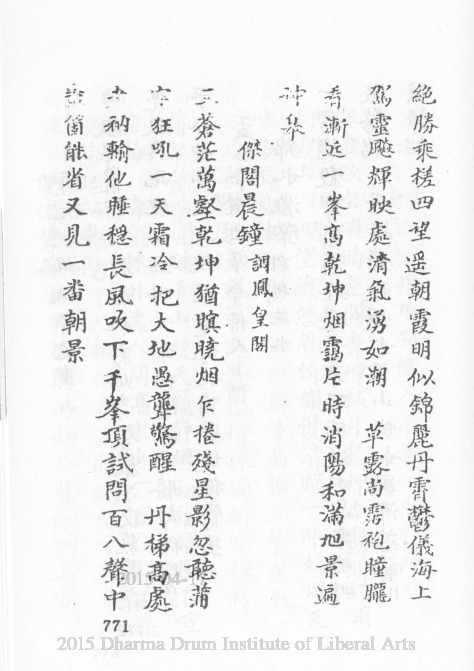 絶勝乘槎四望遥朝霞明似錦麗丹霄鬱儀海上
駕靈飈輝映處清氣湧如潮　草露尚霑袍曈朧
看漸近峯高乾坤烟靄片時消陽和滿地景遍
神皋
傑閣晨鐘調鳳皇閣
蒼茫萬壑乾坤猶暝曉烟乍捲殘星影忽聽蒲
牢狂吼　天霜冷把大地愚聾驚醒　丹梯高處
衲輸他睡穩長風吹下千峯頂試問百八聲中
箇能省又見一番朝景
771
2015 Dharma Drum Institute of Liberal Arts